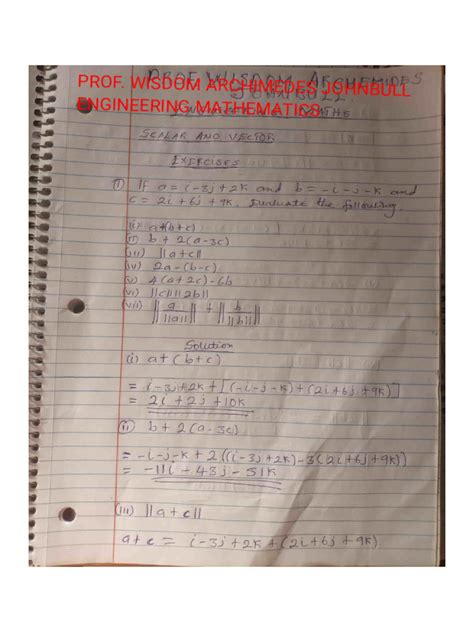 PROF. WISDOM ARCHIMEDES JOHNBULL
ENGINEERING MATHEMATICS
SCALAR AND VECTOR
EXERCISES
① If a = i-3j+2k and b = -i-j-k and
c = 2i+6j+9k. Evaluate the following
(i) a+(b+c)
(ii) b+2(a-3c)
(iii) ||a+c||
(iv) 2a-(b-c)
(v) 4(a+2c)-6b
(vi) ||c|| ||2b||
(vii) || a/||a|| || + || b/||b|| ||
Solution
(i) a+(b+c)
= i-3j+2k+[(-i-j-k)+(2i+6j+9k)]
= 2i+2j+10k
(ii) b+2(a-3c)
= -i-j-k+2[(i-3j+2k)-3(2i+6j+9k)]
= -11i-43j-51k
(iii) ||a+c||
a+c = i-3j+2k+(2i+6j+9k)